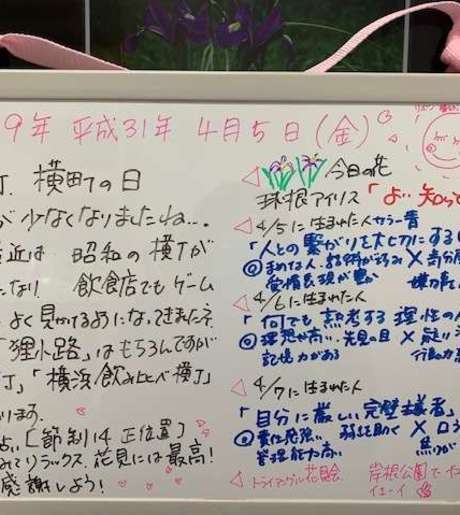 9年 平成31年 4月5日(金)
横町の日
が少なくなりましたね…。
近は 昭和の横丁が
なり 飲食店でもゲーム
よく見かけるようになってきましたネ
「狸小路」はもちろんですが
丁」「横浜飲み比べ横丁」
ります。
占い［節制14 正位置］
みてリラックス。花見には最高!
感謝しよう!
今日の花
球根アイリス「よい知らせ
4/5に生まれた人
「人との繋がりを大切にする
4/6に生まれた人
「何でも熟考する 理性の人
◎理想が高い、先見の目 ×
記憶力がある 行動力
4/7に生まれた人
「自分に厳しい完璧主義者」
◎責任感強い 弱気を助く ×
管理能力高い
トライアングル花見会 岸根公園で
イエーイ